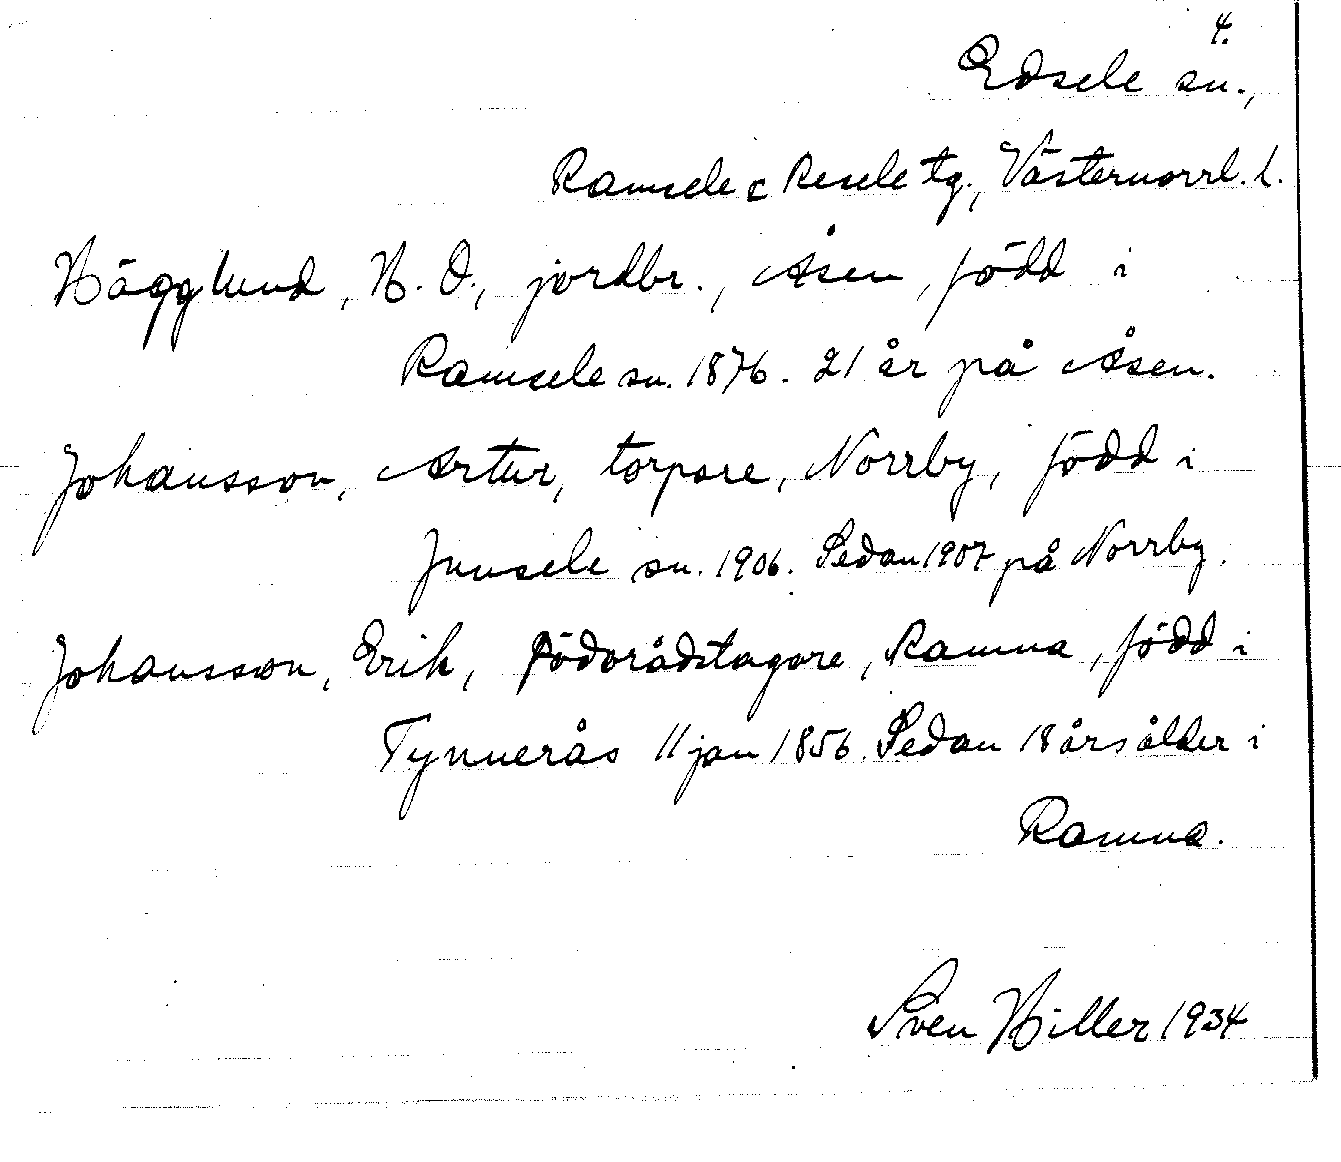 4.
Edsele sn.,
Ramsele c Resele tg., Västernorrl. l.
Hägglund, H. O., jordbr., Åsen, född i
Ramsele sn. 1876. 21 år på Åsen.
Johansson, Artur, torpare, Norrby, född i
Junsele sn. 1906. Sedan 1907 på Norrby.
Johansson, Erik, födorådstagare, Ramna, född i
Tynnerås 11 jan 1856. Sedan 18 års ålder i
Ramna.
Sven Hiller 1934